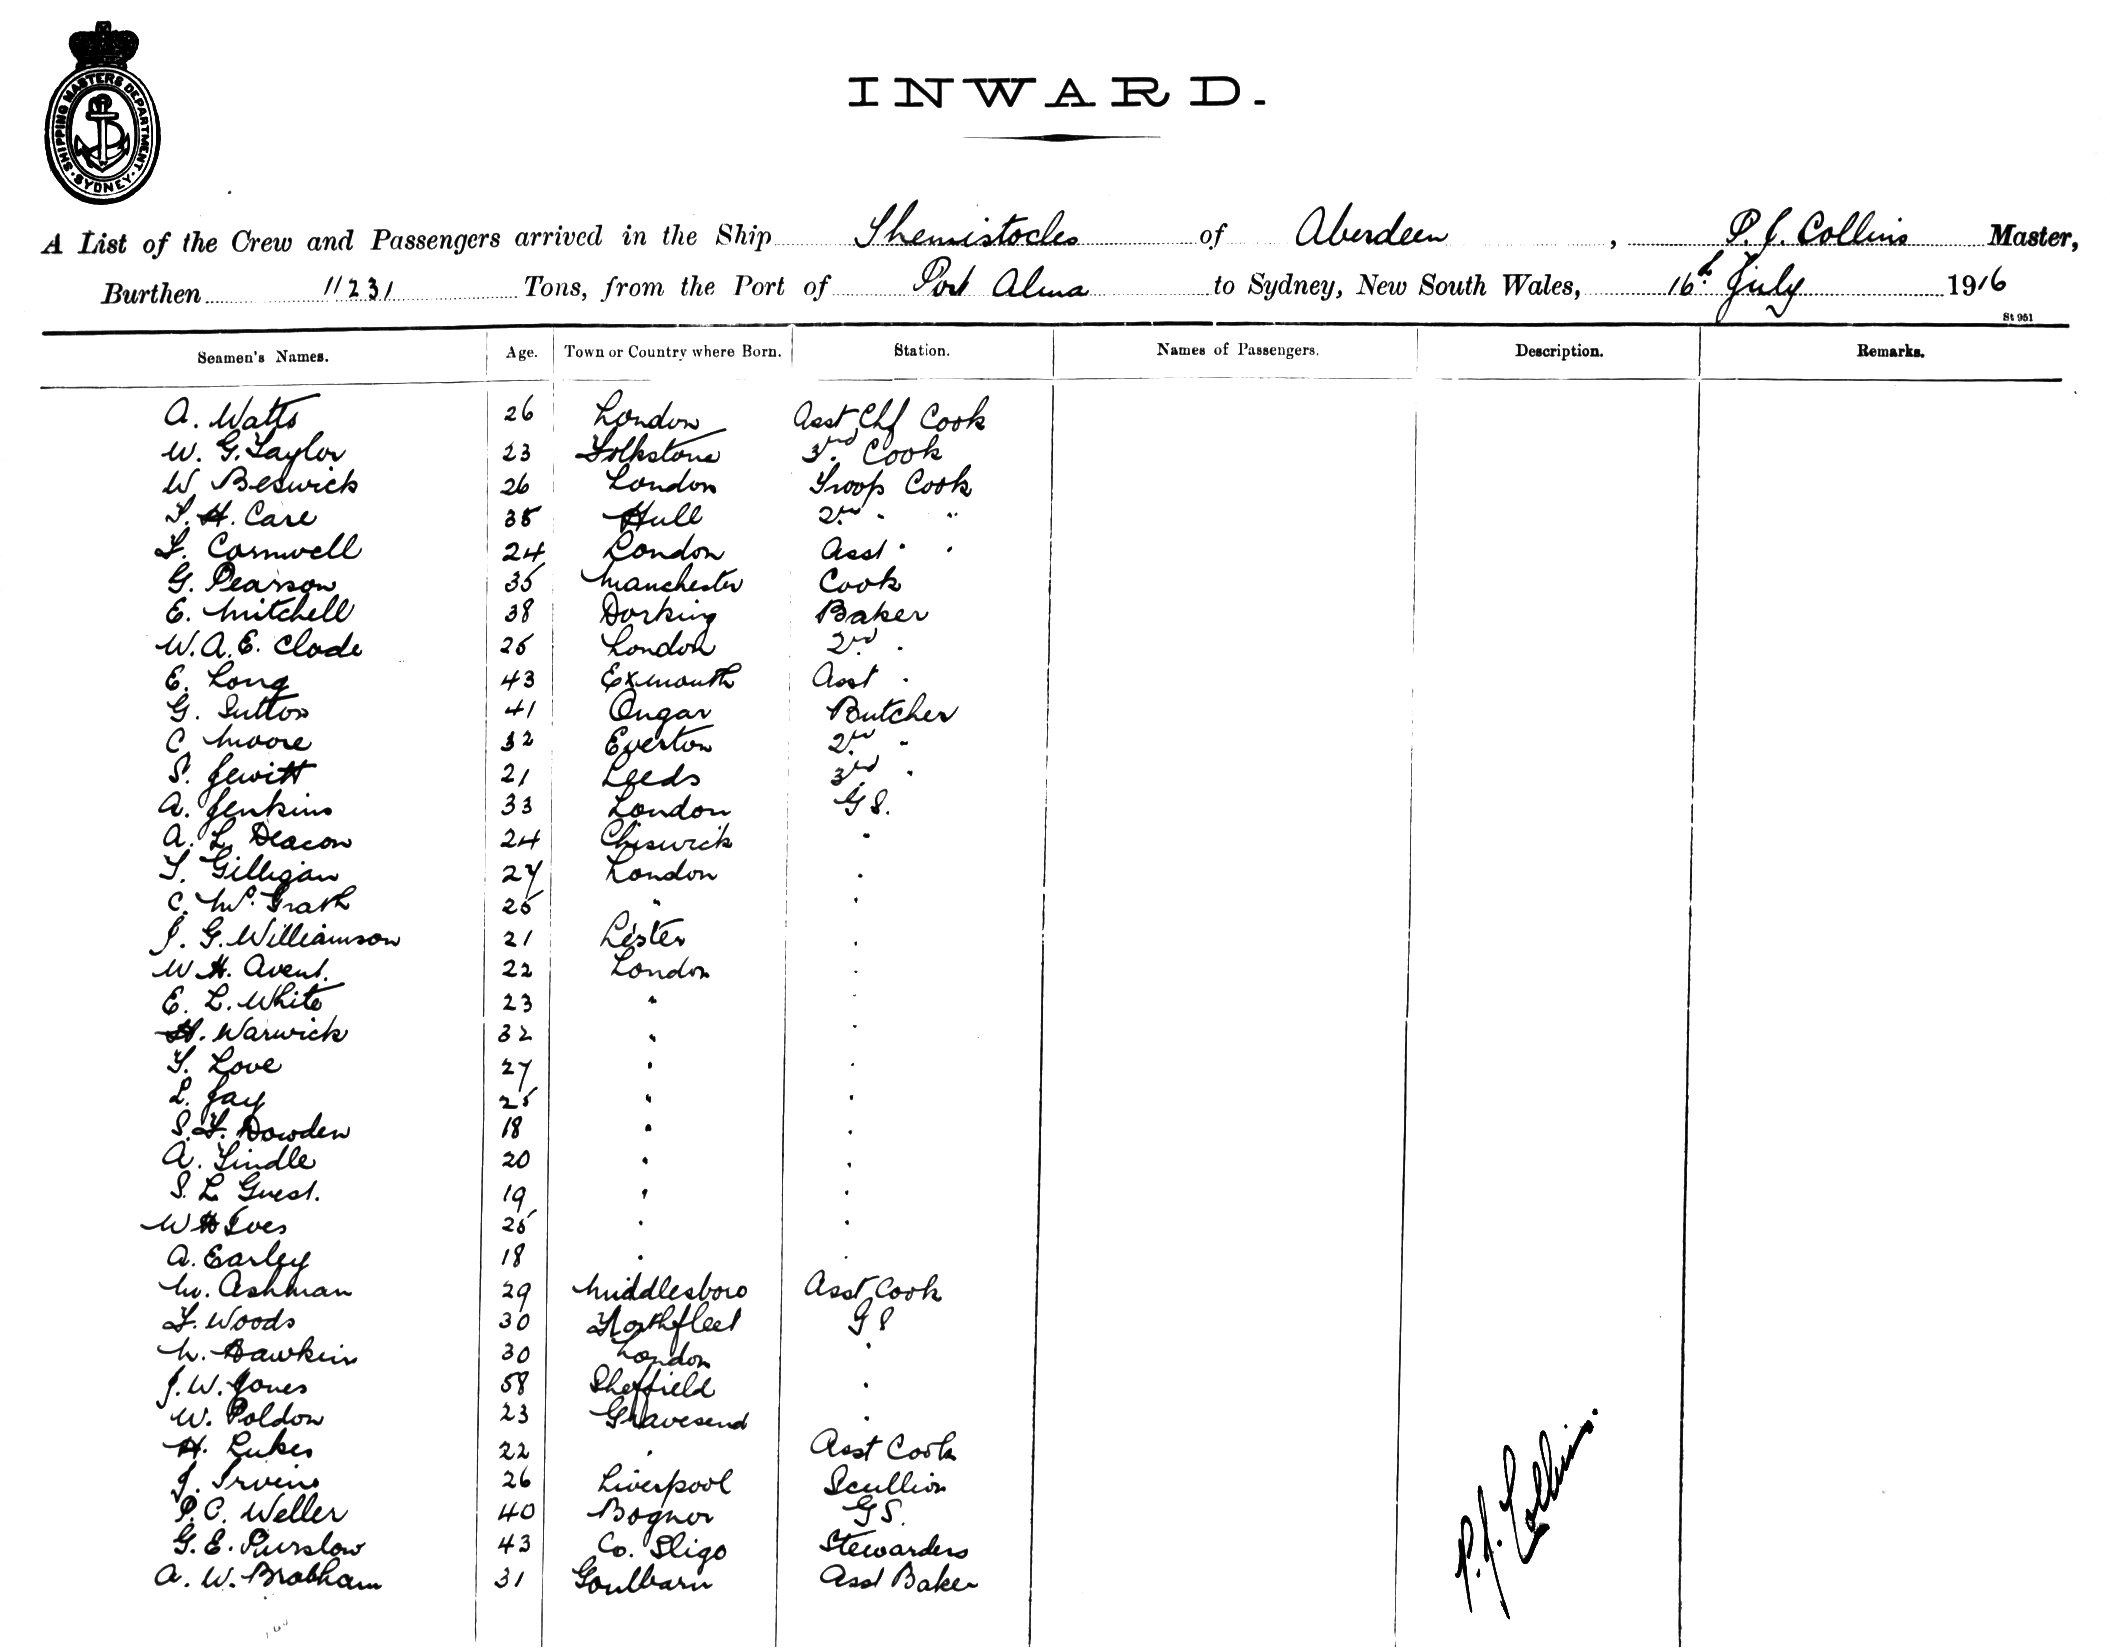 SHIPPING MASTERS DEPARTMENT
SYDNEY
INWARD.
A List of the Crew and Passengers arrived in the Ship Themistocles of Aberdeen, P. J. Collins Master,
Burthen 11231 Tons, from the Port of Port Alma to Sydney, New South Wales, 16th July 1916
St 951
Seamen's Names. Age. Town or Country where Born. Station. Names of Passengers. Description. Remarks.
A. Watts 26 London Asst Chf Cook
W. G. Taylor 23 Folkstone 3rd Cook
W Beswick 26 London Troop Cook
T. H. Care 35 Hull 2nd " "
F. Cornwell 24 London Asst " "
G. Pearson 35 Manchester Cook
E. Mitchell 38 Dorking Baker
W. A. E. Clode 25 London 2nd "
E. Long 43 Exmouth Asst "
G. Sutton 41 Ongar Butcher
C Moore 32 Everton 2nd "
S. Jewitt 21 Leeds 3rd "
A. Jenkins 33 London G S.
A. L. Deacon 24 Chiswick "
T. Gilligan 27 London "
C. Mc Grath 25 " "
J. G. Williamson 21 Lister "
W H. Avent. 22 London "
E. L. White 23 " "
H. Warwick 32 " "
F. Love 27 " "
L. Jay 25 " "
S. F. Dowden 18 " "
A. Tindle 20 " "
S. L Guest. 19 " "
W H Ives 25 " "
A. Earley 18 " "
M. Ashman 29 Middlesboro Asst Cook
F. Woods 30 Northfleet G S
M. Hawkin 30 London "
J. W. Jones 58 Sheffield "
W. Poldon 23 Gravesend "
H. Lukes 22 " Asst Cook
J. Irvine 26 Liverpool Scullion
P. C. Weller 40 Bognor G S.
G. E. Purslow 43 Co. Sligo Stewardess
A. W. Brabham 31 Goulburn Asst Baker
P. J. Collins.